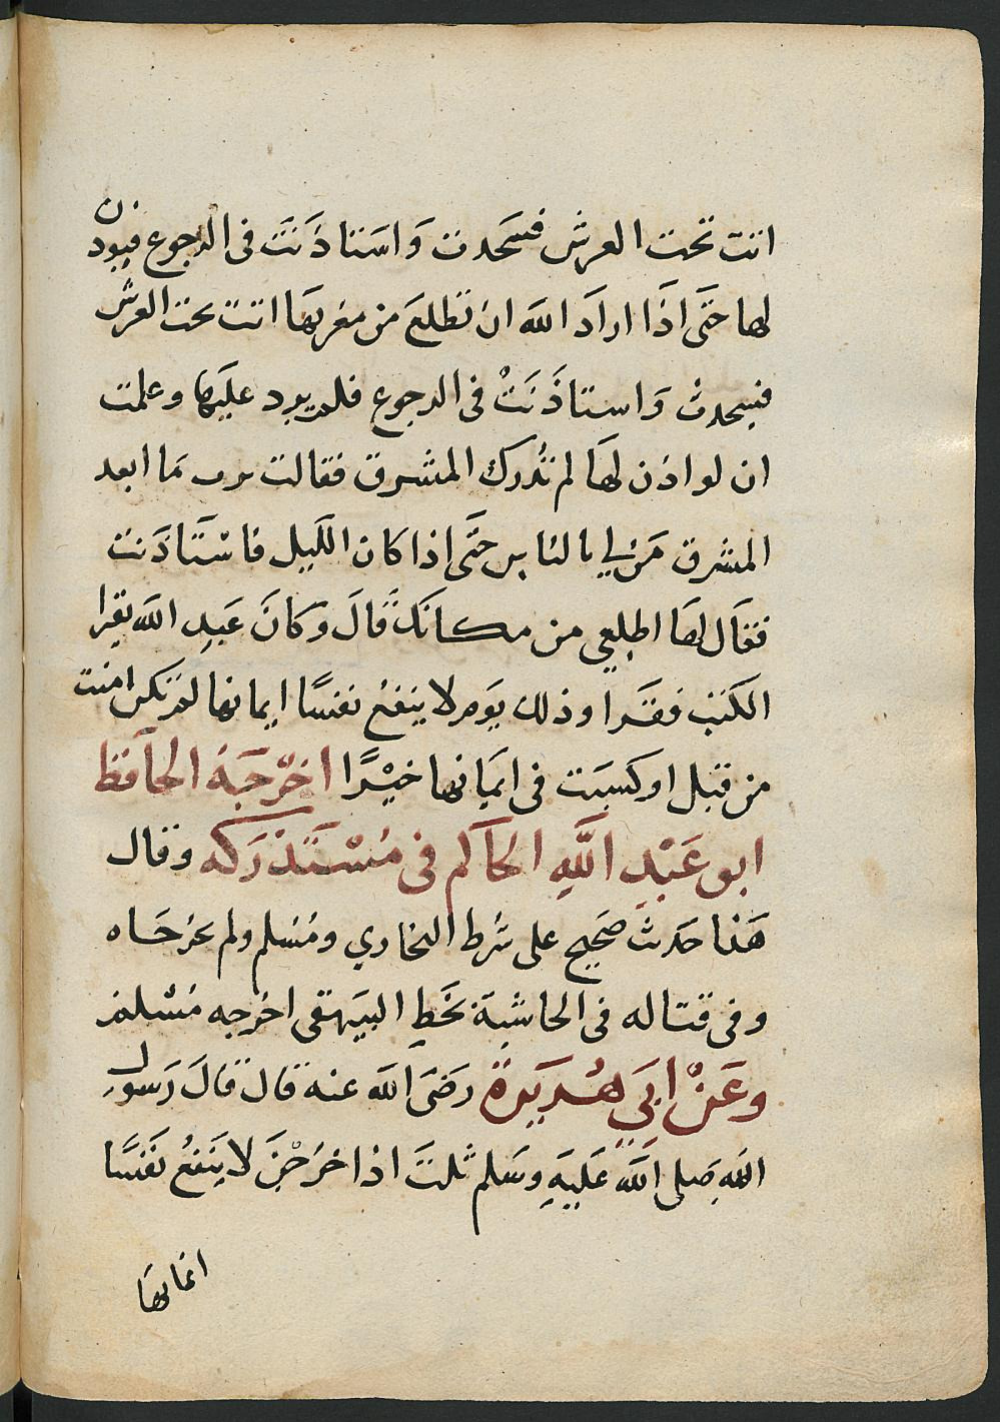 اتت تحت العرش فسجدت وَاسَتنا ذَنَتَ فى الرجوع فيوذن
لها حتَى اذَا ارادَ اللهَ ان تَطلعَ من مغربهَا اتت تحت العرش
فسجدت وَاستاذَنَتْ فى الرجوع فلم يرد عليَها وعلمت
ان لو اذن لهَا لم تُدرك المشرق فقالت رب مَا ابعد
المشرق مَن لي بالناس حتَى اذا كان الليل فاسْتَاذَنت
فقَال لهَا اطلعي من مكانَك قَالَ وكانَ عَبدِ اللهَ يقرا
الكتب فقَرا وذلك يَومَ لا ينفعُ نفسًا ايمانها لم تكن امنت
من قبل او كسَبَت فى ايمَانها خيْرًا اخْرجَهُ الحاَفظ
ابو عَبْدِ اللَّهِ الحاَكم فى مُسْتَدْرَكه وقال
هَذا حَديث صَحيح على شَرط البخاري ومُسْلم ولم يخرجَاه
وفى قتاله فى الحاشيَة بخَطِ البيَهقى اخرجه مُسْلم
وعَنْ ابَي هُريَرة رَضَى اللهَ عنه قال قالَ رَسول
اللهِ صَلى اللهَ عَليَهِ وسَلم ثلثَ اذا خرَجْنَ لا يَنفعُ نَفسًا
ايمانهَا